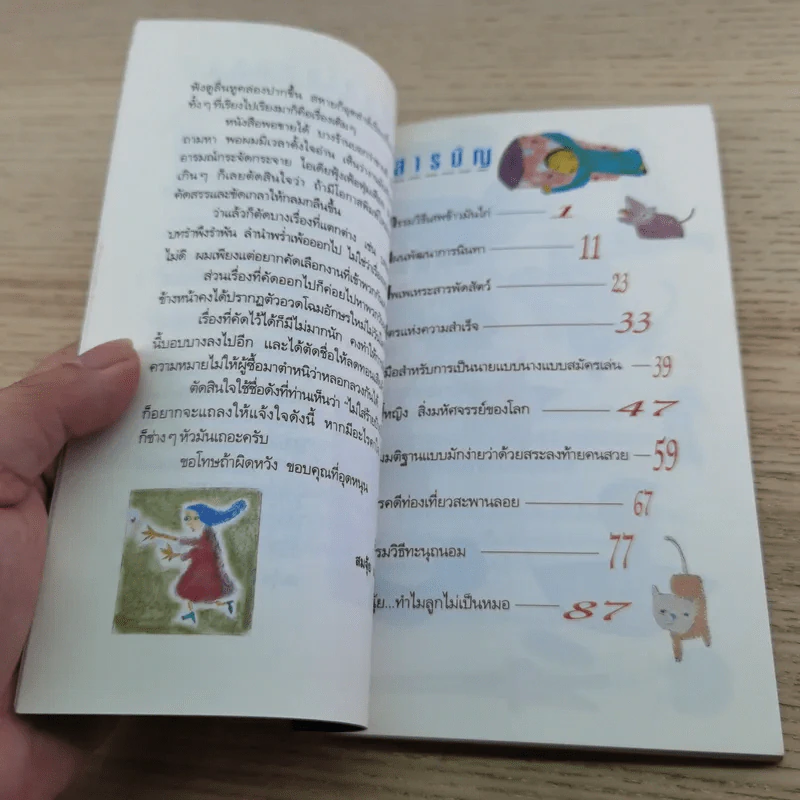 ฟังดูลื่นหูคล่องปากขึ้น
ทั้งๆ ที่เรียงไปเรียงมาก็คือเรื่องเดิมๆ
หนังสือพอขายได้
ถามหา พอผมมีเวลาตั้งใจอ่าน
อารมณ์กระจัดกระจาย
เกินๆ ก็เลยตัดสินใจว่า ถ้ามีโอกาส
คัดสรรและขัดเกลาให้กลมกลืนขึ้น
ว่าแล้วก็ตัดบางเรื่องที่แตกต่าง เช่น
บทรำพึงรำพัน ลำนำพร่ำเพ้อออกไป
ไม่ดี ผมเพียงแต่อยากคัดเลือกงานที่เข้าพวก
ส่วนเรื่องที่คัดออกไปก็ค่อยไปหาพวก
ข้างหน้าคงได้ปรากฏตัวอวดโฉมอักษรใหม่
เรื่องที่คัดไว้ได้ก็มีไม่มากนัก คงทำให้
นี้บอบบางลงไปอีก และได้ตัดชื่อให้ลดทอน
ความหมายไม่ให้ผู้ซื้อมาตำหนิว่าหลอกลวงกันได้
ตัดสินใจใช้ชื่อดังที่ท่านเห็นว่า
ก็อยากจะแถลงให้แจ้งใจดังนี้ หากมีอะไร
ก็ช่างๆ หัวมันเถอะครับ
ขอโทษถ้าผิดหวัง ขอบคุณที่อุดหนุน
สมจุ้ย
สารบัญ
กรรมวิธีเสพข้าวมันไก่ 1
แผนพัฒนาการนินทา 11
23
แห่งความสำเร็จ 33
มือสำหรับการเป็นนายแบบนางแบบสมัครเล่น 39
หญิง สิ่งมหัศจรรย์ของโลก 47
มติฐานแบบมักง่ายว่าด้วยสระลงท้ายคนสวย 59
รคดีท่องเที่ยวสะพานลอย 67
รมวิธีทะนุถนอม 77
ทำไมลูกไม่เป็นหมอ 87